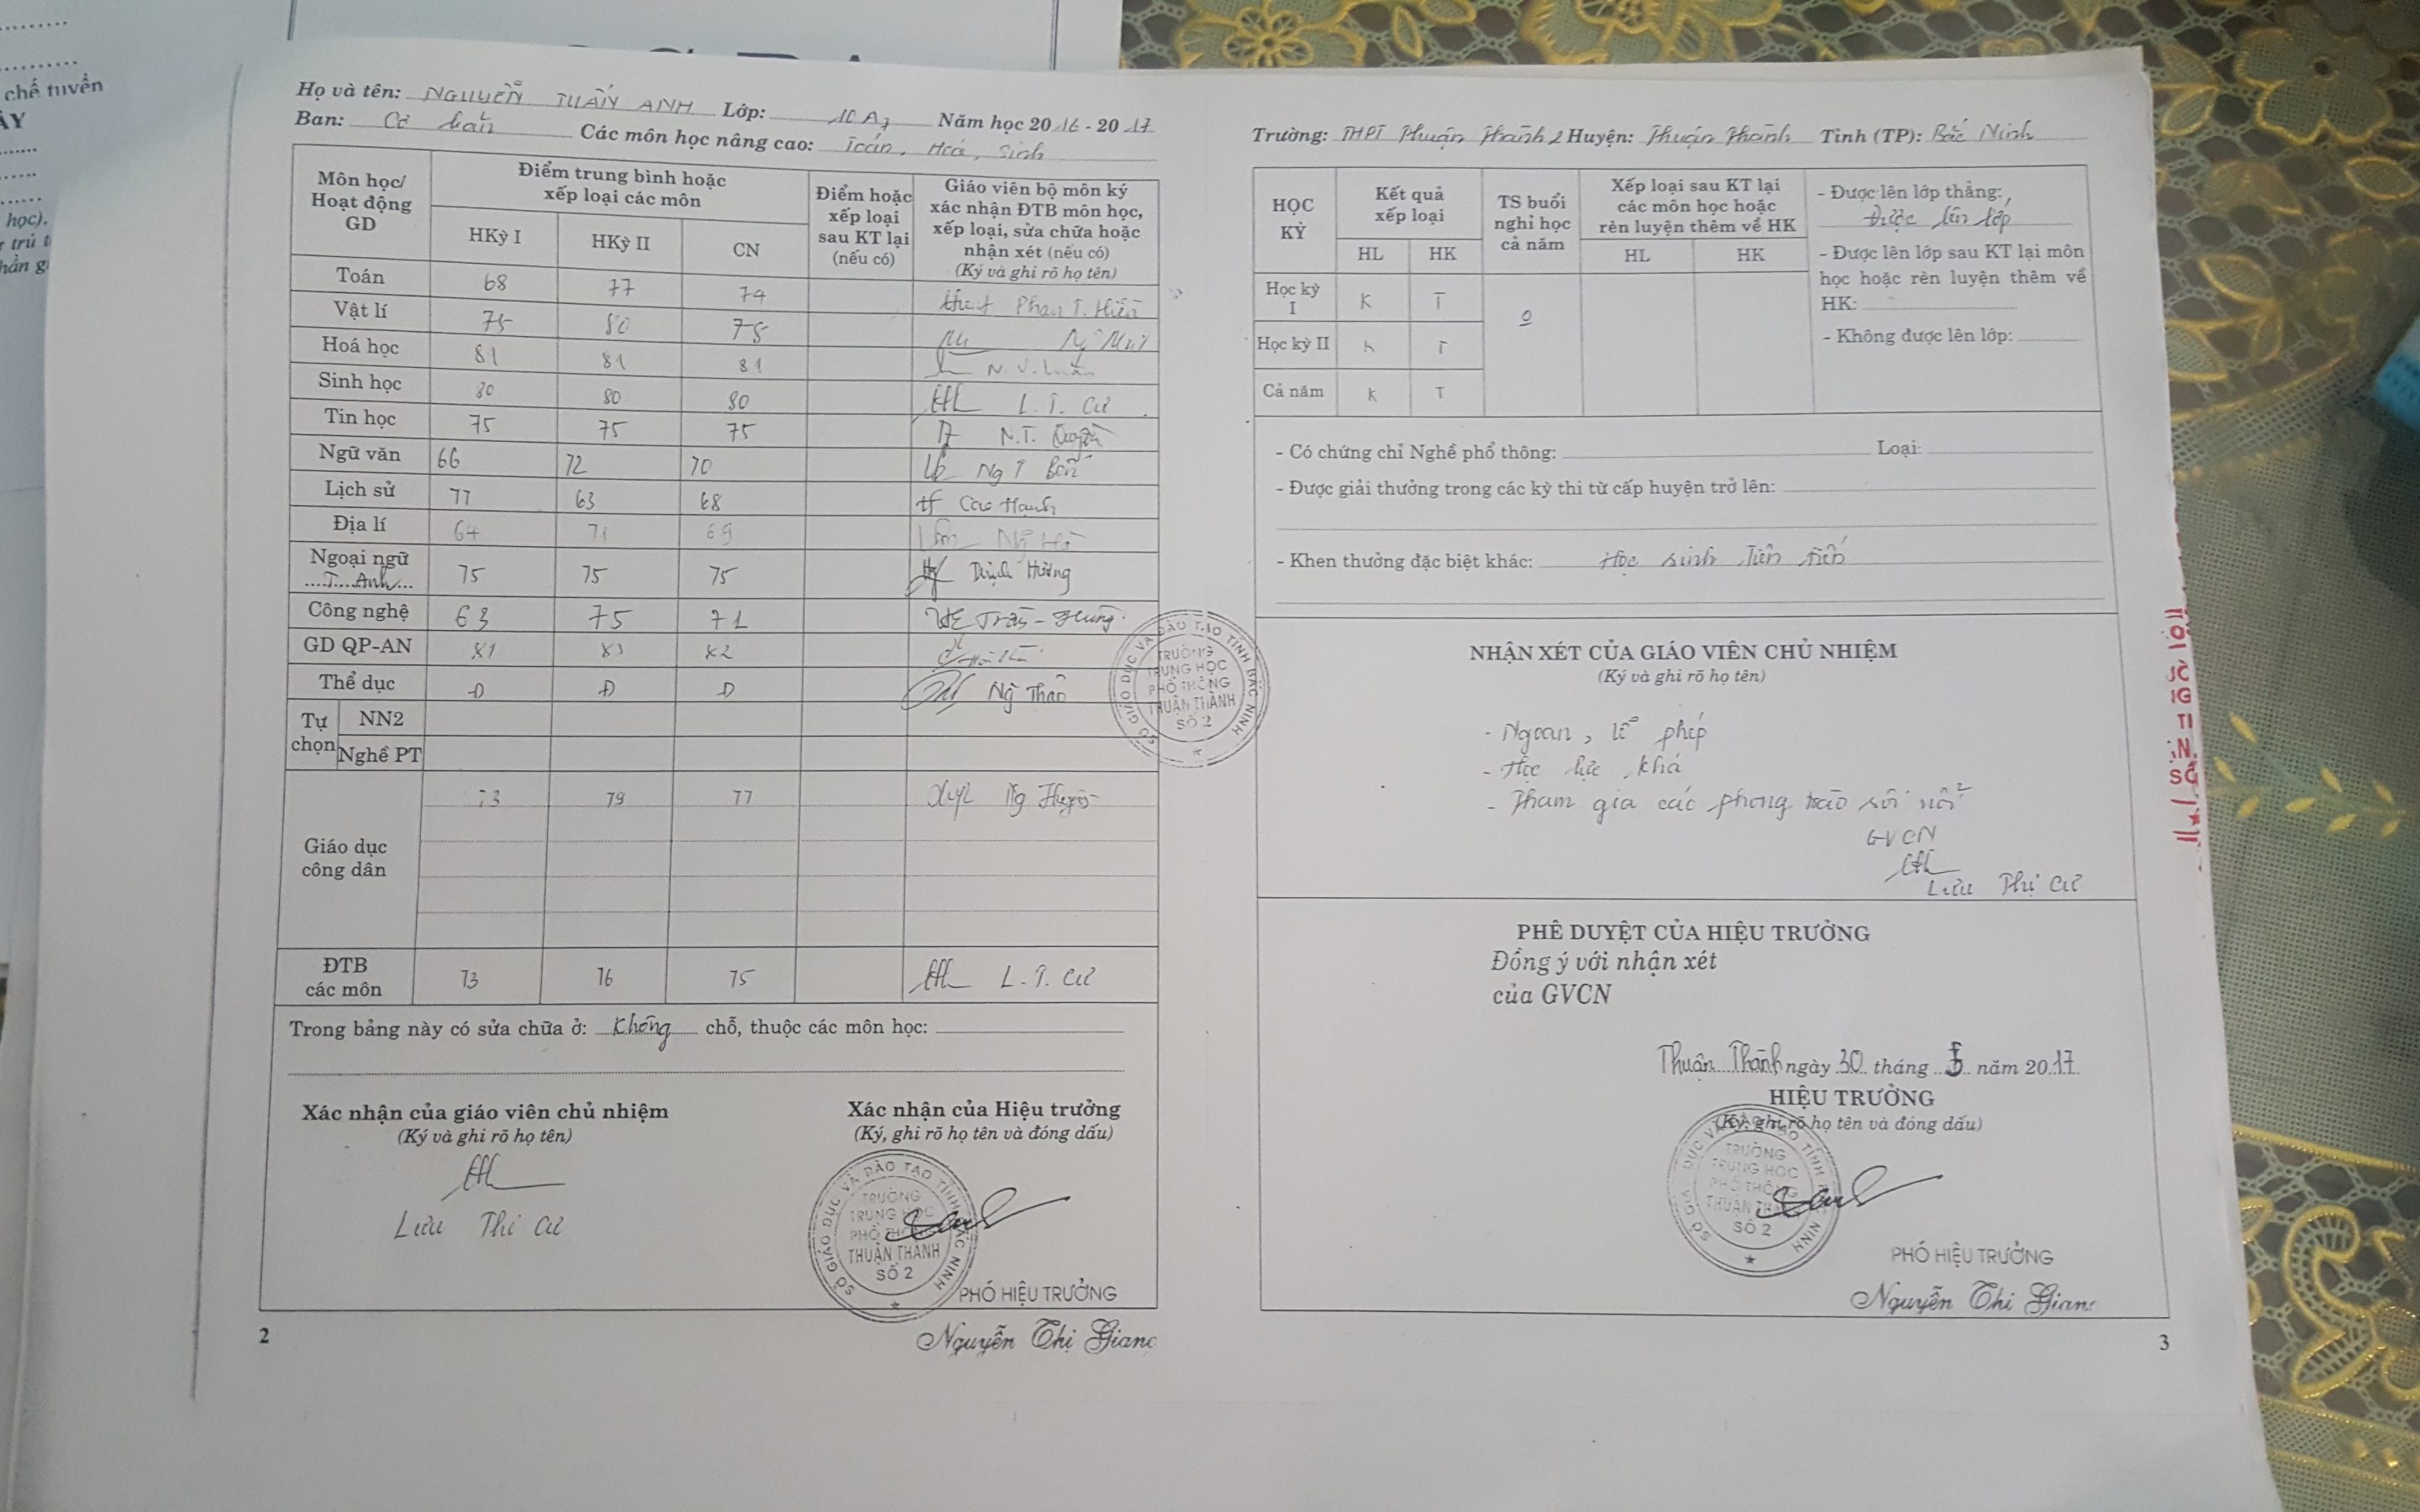 chế tuyển
ÀY
học).
Họ và tên: NGUYỄN TUẤN ANH Lớp: 10 A7 Năm học 2016 - 2017
Ban: Cơ bản Các môn học nâng cao: Toán, Hoá, Sinh
Môn học/ Hoạt động GD
Điểm trung bình hoặc xếp loại các môn
HKỳ I HKỳ II CN
Điểm hoặc xếp loại sau KT lại (nếu có)
Giáo viên bộ môn ký xác nhận ĐTB môn học, xếp loại, sửa chữa hoặc nhận xét (nếu có)
(Ký và ghi rõ họ tên)
Toán 68 77 74 Phan T. Hiền
Vật lí 75 80 75
Hoá học 81 81 81 N. V.
Sinh học 80 80 80 L. T. Cư
Tin học 75 75 75 N.T.
Ngữ văn 66 72 70 Ng T
Lịch sử 77 63 68 Cao Hạnh
Địa lí 64 71 69
Ngoại ngữ T. Anh 75 75 75 Hường
Công nghệ 63 75 71 Trần - Hưng
GD QP-AN 81 83 82
Thể dục Đ Đ Đ
Tự chọn
NN2
Nghề PT
Giáo dục công dân 73 79 77 Ng
ĐTB các môn 73 76 75 L. T. Cư
Trong bảng này có sửa chữa ở: Không chỗ, thuộc các môn học:
Xác nhận của giáo viên chủ nhiệm
(Ký và ghi rõ họ tên)
Lưu Thị Cư
Xác nhận của Hiệu trưởng
(Ký, ghi rõ họ tên và đóng dấu)
SỞ GIÁO DỤC VÀ ĐÀO TẠO TỈNH BẮC NINH
TRƯỜNG
TRUNG HỌC
PHỔ THÔNG
THUẬN THÀNH
SỐ 2
PHÓ HIỆU TRƯỞNG
Nguyễn Thị Giang
2
SỞ GIÁO DỤC VÀ ĐÀO TẠO TỈNH BẮC NINH
TRƯỜNG
TRUNG HỌC
PHỔ THÔNG
THUẬN THÀNH
SỐ 2
Trường: THPT Thuận Thành 2 Huyện: Thuận Thành Tỉnh (TP): Bắc Ninh
HỌC KỲ
Kết quả xếp loại
HL HK
TS buổi nghỉ học cả năm
Xếp loại sau KT lại các môn học hoặc rèn luyện thêm về HK
HL HK
Học kỳ I K T 0
Học kỳ II K T
Cả năm K T
- Được lên lớp thẳng:
Được lên lớp
- Được lên lớp sau KT lại môn
học hoặc rèn luyện thêm về
HK:
- Không được lên lớp:
- Có chứng chỉ Nghề phổ thông: Loại:
- Được giải thưởng trong các kỳ thi từ cấp huyện trở lên:
- Khen thưởng đặc biệt khác: Học sinh Tiên tiến
NHẬN XÉT CỦA GIÁO VIÊN CHỦ NHIỆM
(Ký và ghi rõ họ tên)
- Ngoan, lễ phép
- Học lực khá
- Tham gia các phong trào sôi nổi
GVCN
Lưu Thị Cư
PHÊ DUYỆT CỦA HIỆU TRƯỞNG
Đồng ý với nhận xét
của GVCN
Thuận Thành ngày 30 tháng 5 năm 2017
HIỆU TRƯỞNG
(Ký, ghi rõ họ tên và đóng dấu)
TRƯỜNG
TRUNG HỌC
PHỔ THÔNG
THUẬN THÀNH
SỐ 2
PHÓ HIỆU TRƯỞNG
Nguyễn Thị Giang
3